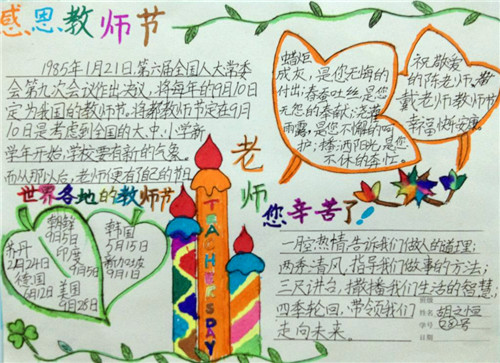 感恩教师节
1985年1月21日,第六届全国人大常委
会第九次会议作出决议,将每年的9月10日
定为我国的教师节,将教师节定在9月
10日是考虑到全国的大、中、小学新
学年开始,学校要有新的气象。
而从那以后,老师便有自己的节日
蜡炬
成灰,是您无悔的
付出;春蚕吐丝,是您
无怨的奉献;
雨露,是您不懈的
护;播洒阳光,是您
不休的
祝敬爱
的陈老师、
戴老师教师节
幸福快乐安康
世界各地的教师节
朝鲜
9月5日
印度
9月5日
苏丹
2月24日
德国
6月12日
美国
9月28日
韩国
5月15日
新加坡
9月1日
TEACHERSDAY
老师
您辛苦了!
一腔热情,告诉我们做人的道理;
两袖清风,指导我们做事的方法;
三尺讲台,撒播我们生活的智慧;
四季轮回,带领我们
走向未来。
班级
姓名 胡文恒
学号
日期